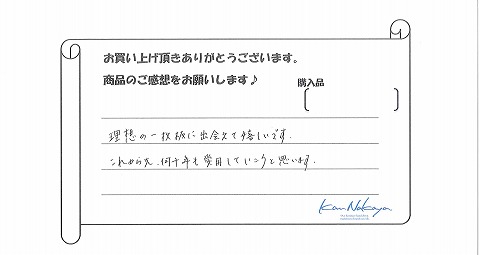 お買い上げ頂きありがとうございます。
商品のご感想をお願いします♪
購入品
理想の一枚板に出会えて嬉しいです。
これから先、何十年も愛用していこうと思います。
KanNakaya